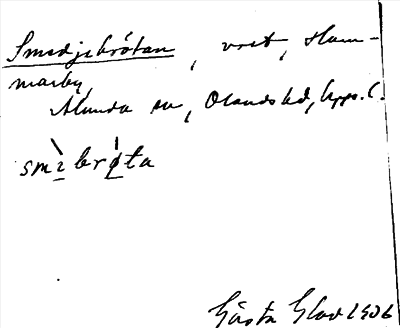 Smedjebråtan, vret, Ham-
marby,
Alunda sn, Olands hd, Upps. l.
smìbrǿta
Gösta Glad 1906